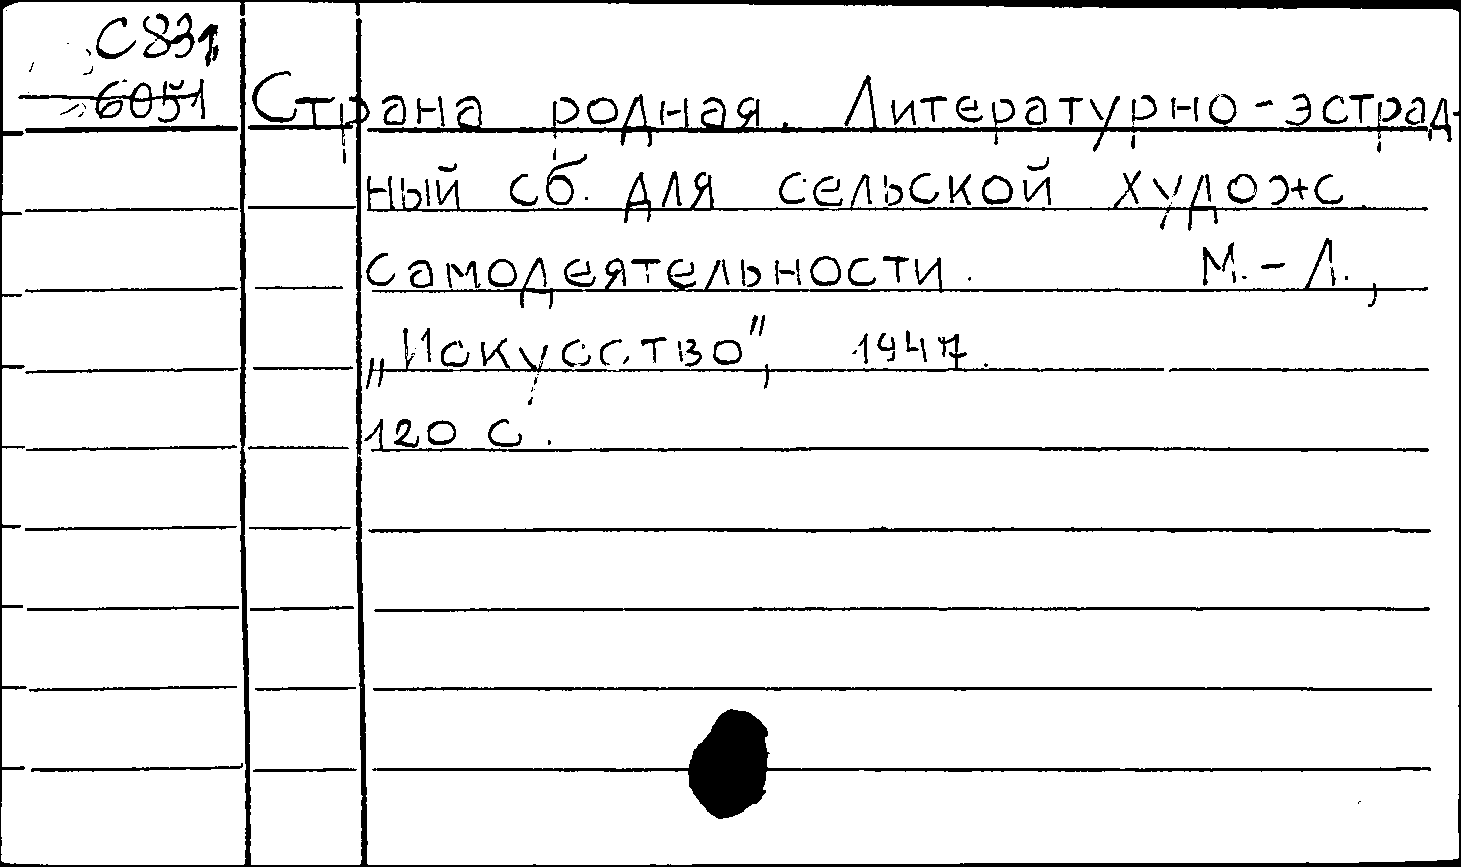 С831
6051 Страна родная. Литературно-эстрад-
ный сб. для сельской худож.
самодеятельности. М.-Л.,
„Искусство", 1947.
120 с.